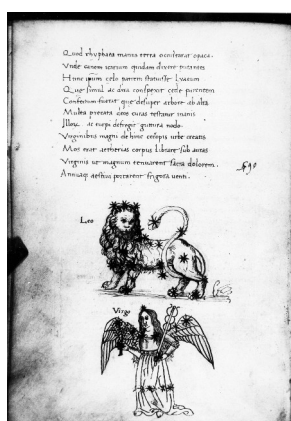 Quod rhuphana manu terra occultarat opaca.
Vnde canem utarum quidam dixere
Hunc ipsum celo patrem statuisse Lyaeum
Que simul ac diro conspexit cede parentem
Confectum furtat que desuper arbore ab alta
Multa precata deos curas testatur inanis
Illosc de rupi defregit guttura nodo.
Virginibus magni dehinc cesopis urbe creatis
Mos erat aetherias corpus librare sub auras
Virginis ut magnum tenuarent facta dolorem.
Annuaq; aestiuis portarent frigora uenti.
Leo
Virgo